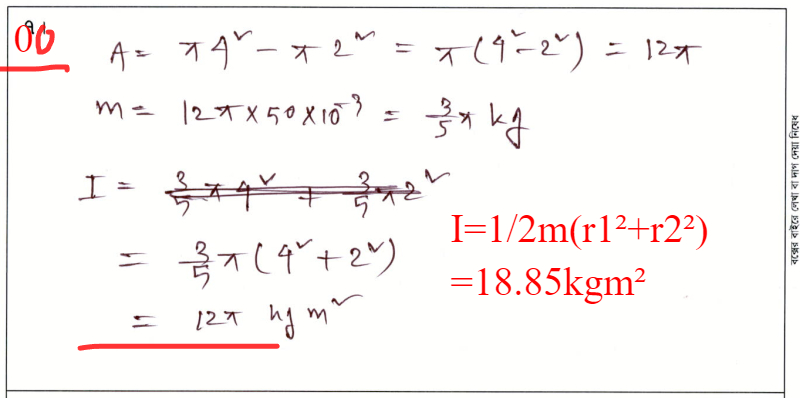 00
A = π4² − π2² = π(4²−2²) = 12π
m = 12π×50×10⁻³ = 3/5 π kg
I = 3/5 π 4² + 3/5 π 2²
= 3/5 π (4²+2²)
= 12π kg m²
I=1/2m(r1²+r2²)
=18.85kgm²
বক্সের বাইরে লেখা বা দাগ দেয়া নিষেধ